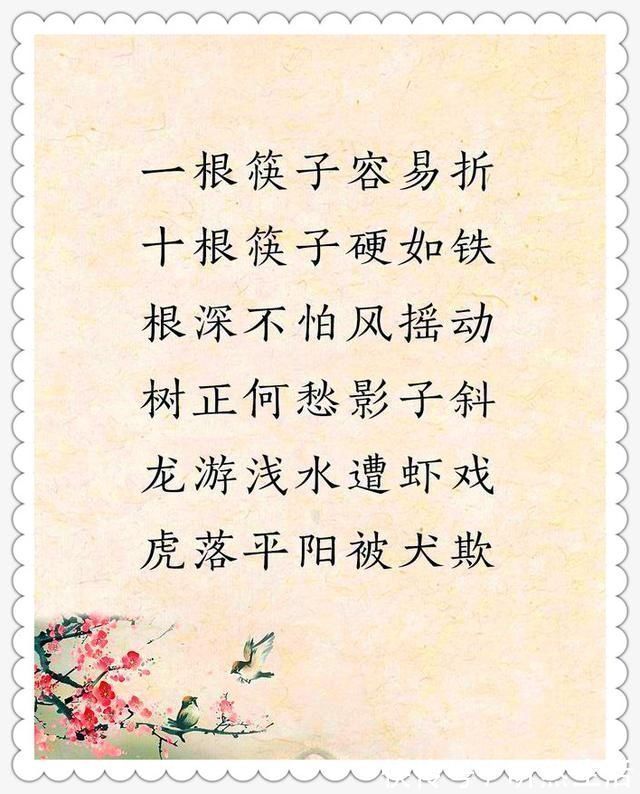 一根筷子容易折
十根筷子硬如铁
根深不怕风摇动
树正何愁影子斜
龙游浅水遭虾戏
虎落平阳被犬欺